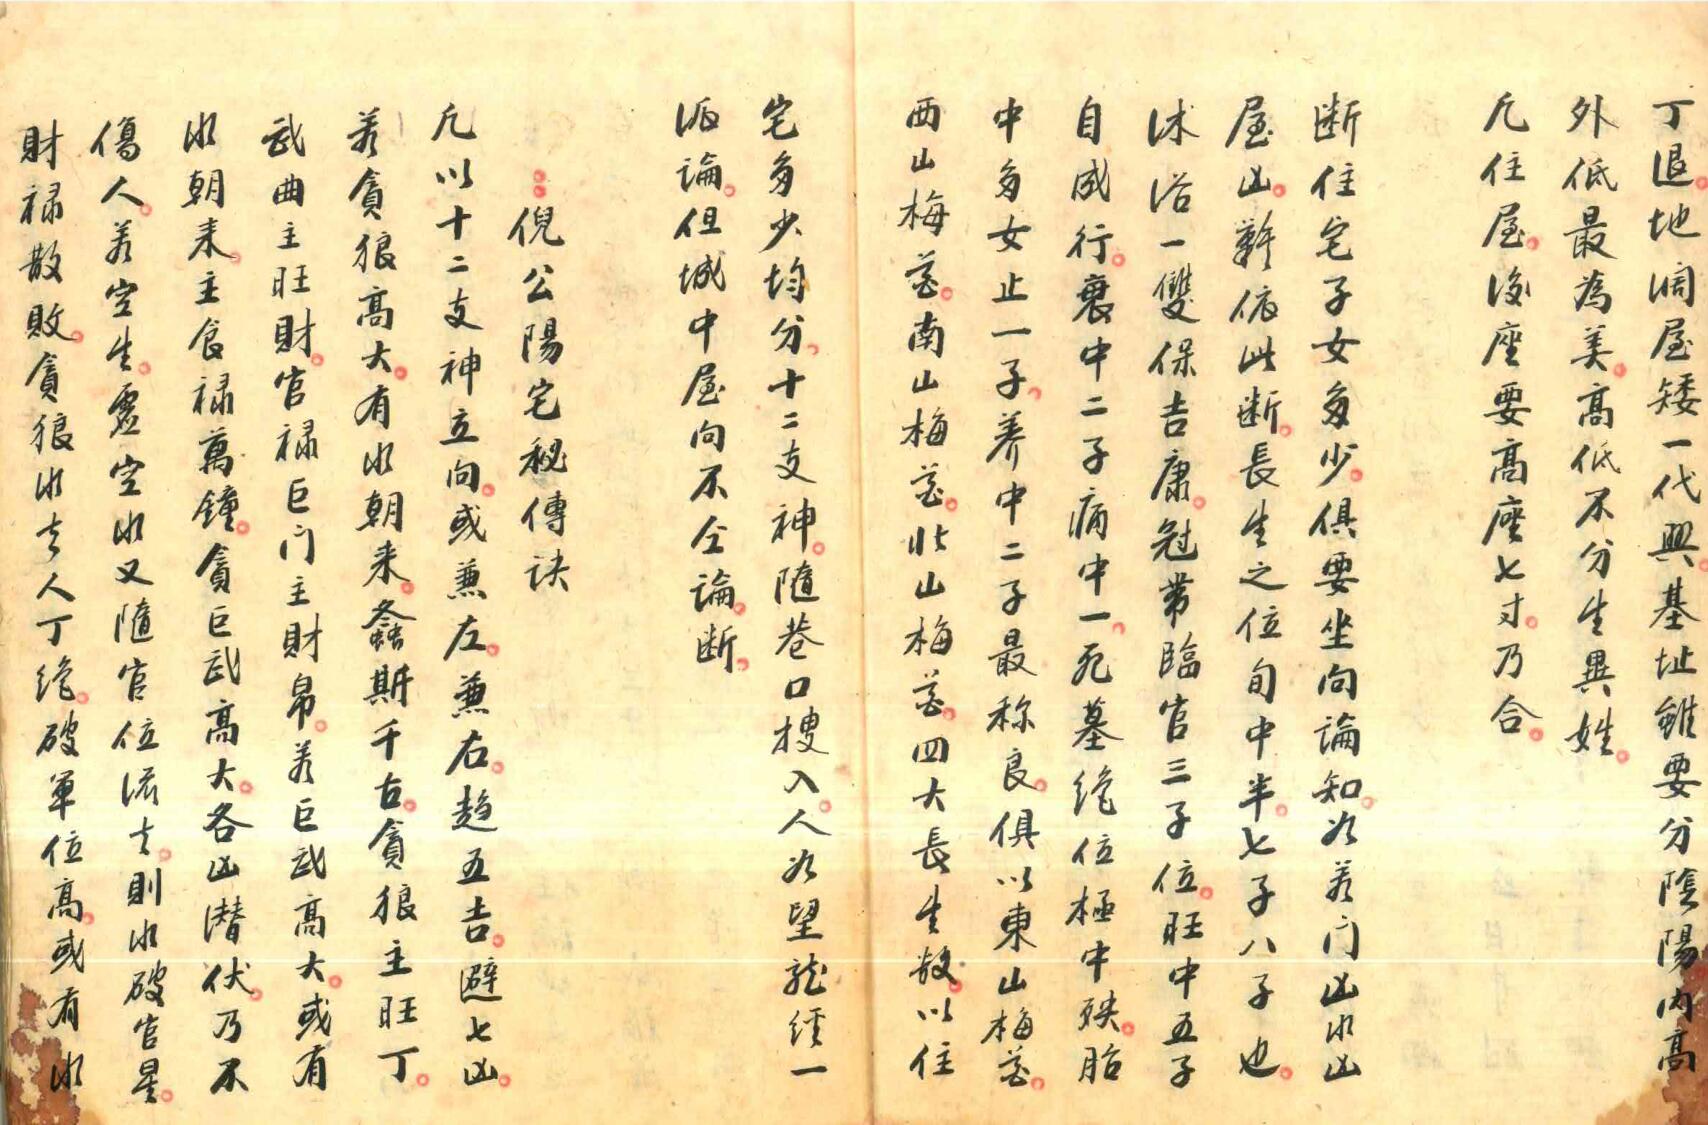 丁退。地濶屋矮一代興。基址雖要分陰陽內高
外低最為美。高低不分生異姓。
凡住屋。後座要高座七寸。乃合。
断住宅子女多少。俱要坐向論知。如若门凶水凶
屋凶。難依此断。長生之位旬中半。七子八子也。
沐浴一雙保吉康。冠帯臨官三子位。旺中五子
自成行。衰中二子病中一。死墓绝位極中殃。胎
中多女止一子。养中二子最称良。俱以東山梅花。
西山梅花。南山梅花。北山梅花。四大長生数。以住
宅多少均分。十二支神。隨巷口搜入。人如望龍經一
派論。但城中屋向不仝論。断。
倪公陽宅秘傳诀
凡以十二支神立向。或兼左。兼右。趋五吉。避七凶。
若貪狼高大。有水朝来。螽斯千古。貪狼主旺丁。
武曲主旺財。官禄巨门主財帛。若巨武高大。或有
水朝来。主食禄萬鐘。貪巨武高大。各凶潜伏。乃不
傷人。若空生。虛空水又隨官位流去。則水破官星。
財禄散敗。貪狼水去人丁绝。破軍位高。或有水